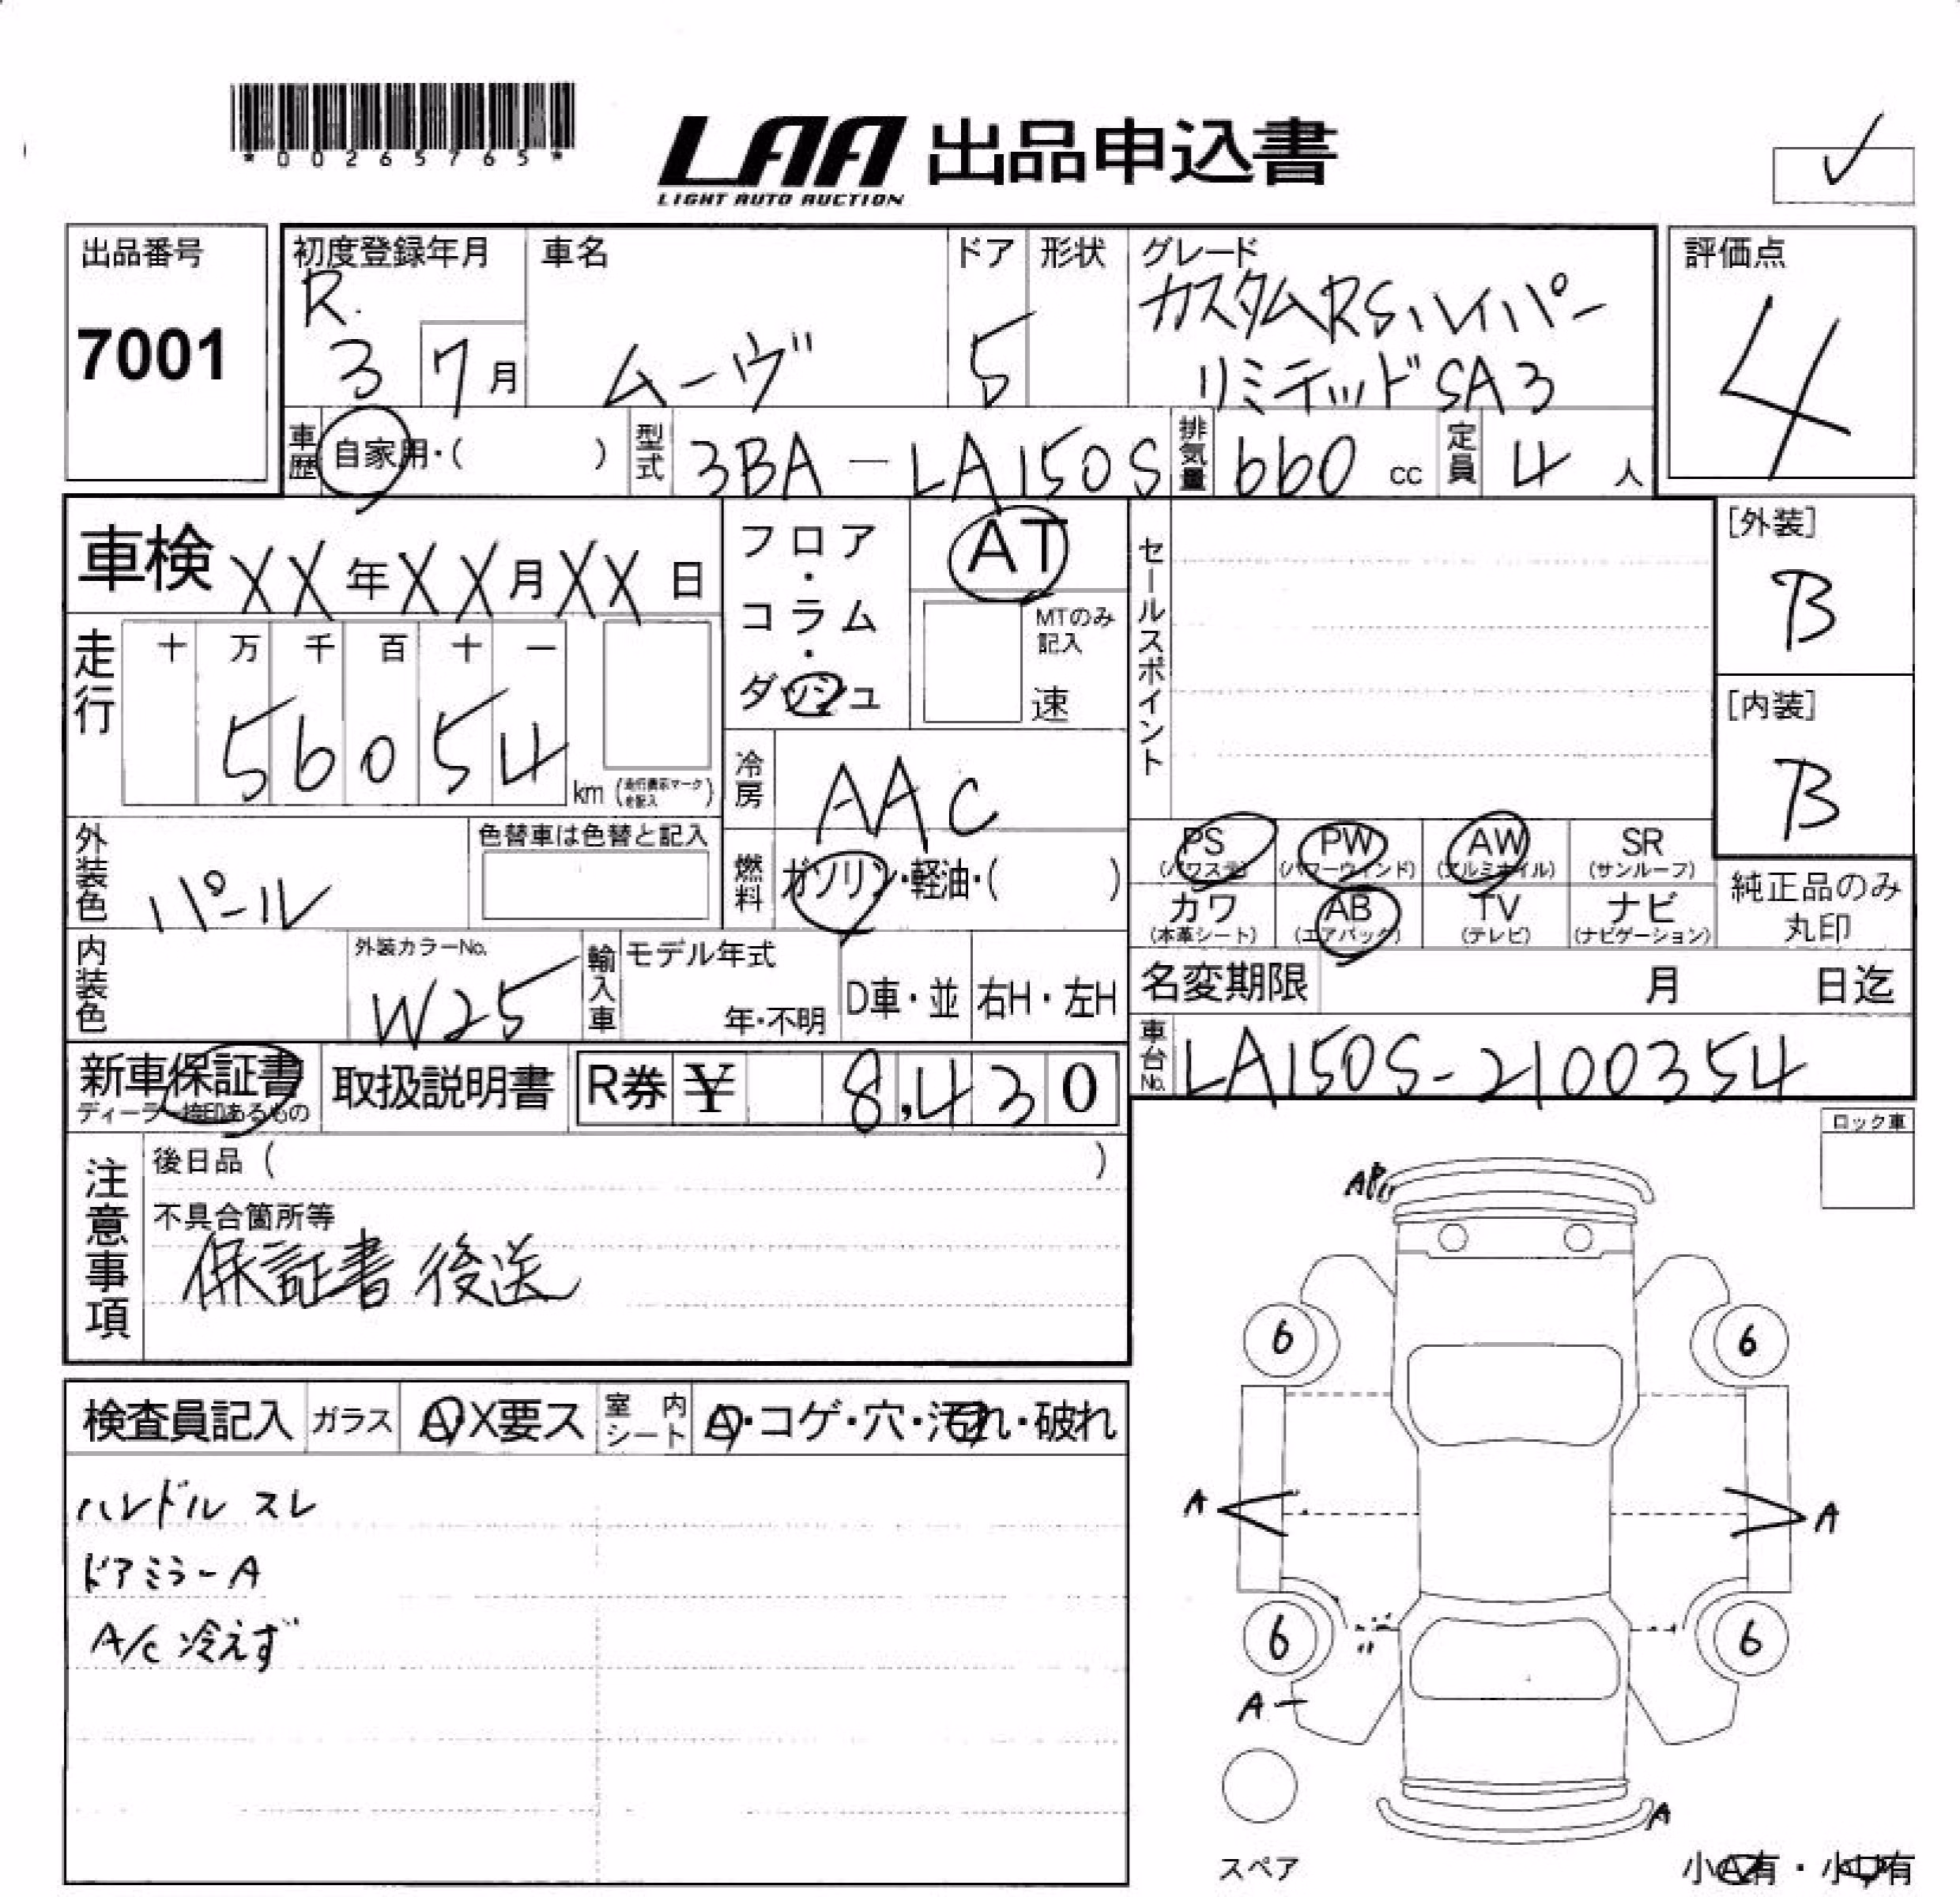 *00265765*
LAA 出品申込書
LIGHT AUTO AUCTION
✓
出品番号
7001
初度登録年月
R.
3 7月
車名
ムーヴ
ドア
5
形状
グレード
カスタムRSハイパー
リミテッドSA3
評価点
4
車歴 自家用・( )
型式 3BA-LA150S
排気量 660 cc
定員 4 人
車検 XX年XX月XX日
フロア・コラム・ダッシュ
AT
MTのみ記入
速
セールスポイント
[外装]
B
[内装]
B
走行
十 万 千 百 十 一
5 6 0 5 4
km (走行表示マークを記入)
冷房 AAC
外装色 パール
色替車は色替と記入
燃料 ガソリン・軽油・( )
PS (パワステ)
PW (パワーウィンド)
AW (アルミホイル)
SR (サンルーフ)
カワ (本革シート)
AB (エアバック)
TV (テレビ)
ナビ (ナビゲーション)
純正品のみ
丸印
内装色
外装カラーNo.
W25
輸入車
モデル年式
年・不明
D車・並
右H・左H
名変期限 月 日迄
車台No. LA150S-2100354
新車保証書
ディーラー捺印あるもの
取扱説明書
R券 ¥ 8,430
ロック車
注意事項
後日品 ( )
不具合箇所等
保証書 後送
検査員記入
ガラス
A・X要ス
室内シート
A・コゲ・穴・汚れ・破れ
ハンドル スレ
ドアミラーA
A/C 冷えず
6
6
A
A
6
6
A
A
スペア
小A有・小U有